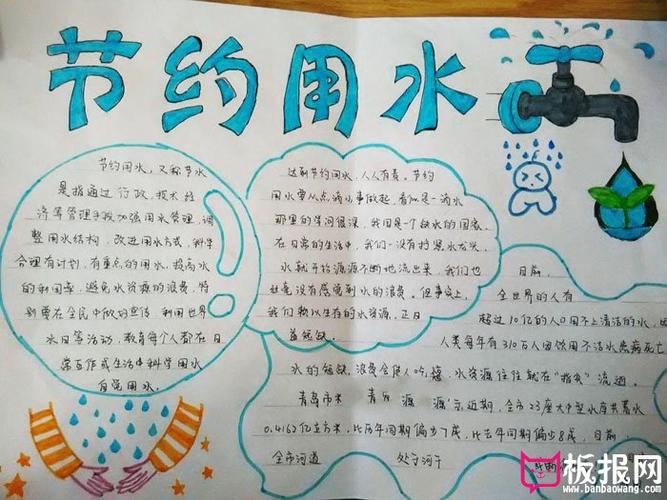 节约用水
节约用水，又称节水
是指通过行政，技术经
济等管理手段加强用水管理，调
整用水结构，改进用水方式，科学
合理有计划，有重点的用水，提高水
的利用率，避免水资源的浪费。特
别要在全民中做的宣传，利用世界
水日等活动，教育每个人都在日
常工作或生活中科学用水
自觉用水。
达到节约用水，人人有责。节约
用水要从点滴小事做起，看似是一滴水
那里的学问很深，我国是一个缺水的国家，
在日常的生活中，我们一没有拧紧水龙头，
水就开始源源不断地流出来，我们也
丝毫没有感觉到水的浪费。但事实上，
我们赖以生存的水资源，正日
益短缺。
目前，
全世界的人有
超过10亿的人口用不上清洁的水，
人类每年有310万人因饮用不洁水患病死亡
水的短缺，浪费会使人吃惊，水资源往往就在“指尖”流逝。
青岛市水
源
近期，全市23座大中型水库共蓄水
0.4162亿立方米，比历年同期偏少7成，比去年同期偏少8成，目前，
全市河道
处于河干
板报网
www.banbaowang.com